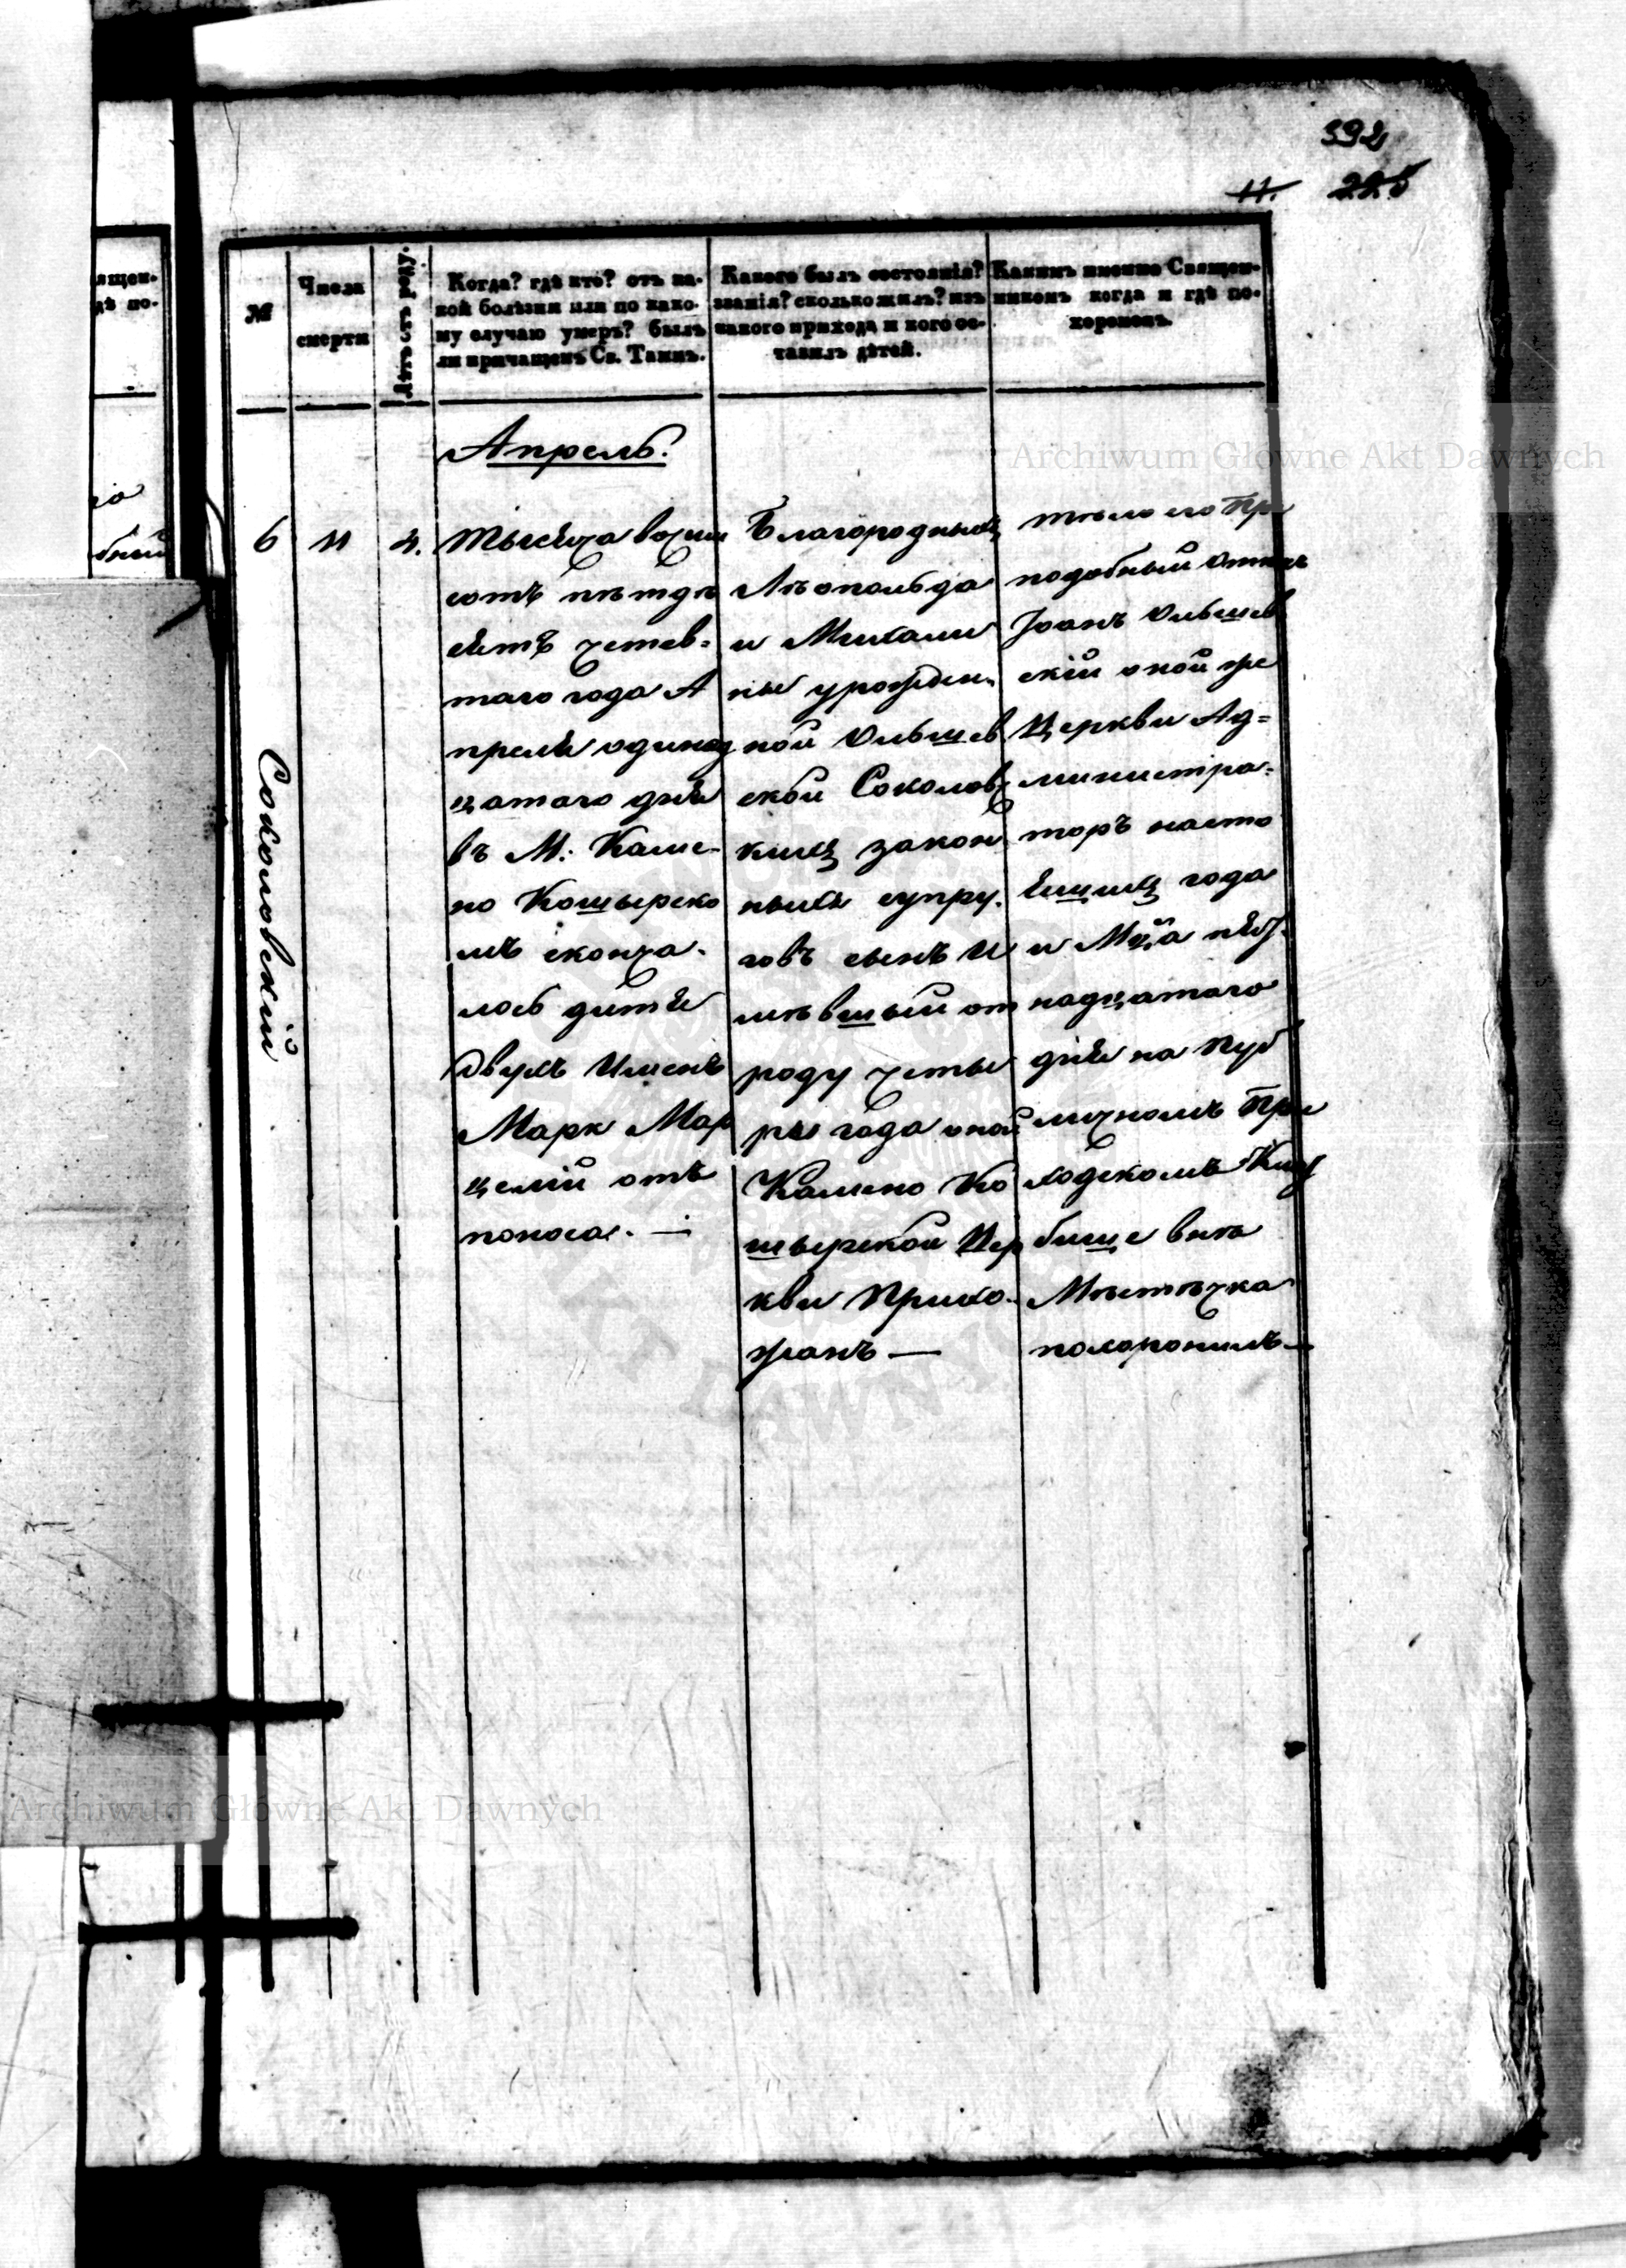 392
11. 225
ящен-
дѣ по-
№
Числа
смерти
Лѣтъ отъ роду.
Когда? гдѣ кто? отъ ка-
кой болѣзни или по како-
му случаю умеръ? былъ
ли причащенъ Св. Таинъ.
Какого былъ состоянія?
званія? сколько жилъ? изъ
какого прихода и кого ос-
тавилъ дѣтей.
Какимъ именно Священ-
никомъ когда и гдѣ по-
хороненъ.
Апрель.
6
11
4.
Соколовскій
Тысяча восем
сотъ пятде
сятъ четвер=
таго года А
преля одинад
цатаго дня
въ М: Каме-
но Коширско
мъ сконча-
лось дитя
Двухъ Именъ
Марк Мар
целій отъ
поноса. —
Благородныхъ
Леопольда
и Михали
ны урожден.
ной Ольшев
ской Соколов
кихъ закон
ныхъ супру.
говъ сынъ И
мѣвшый от
роду четы
ры года оной
Камено Ко
шырской Цер
кви Прихо-
жанъ —
тѣло его Пре
подобный Отецъ
Іоанъ Ольшев
скій оной же
Церкви Ад=
министра=
торъ насто
ящихъ года
и Мца пят-
надцатаго
дня на Пуб
личномъ При
ходскомъ Клад
бище внѣ
Мѣстечка
похоронилъ —
Archiwum Główne Akt Dawnych
Archiwum Główne Akt Dawnych